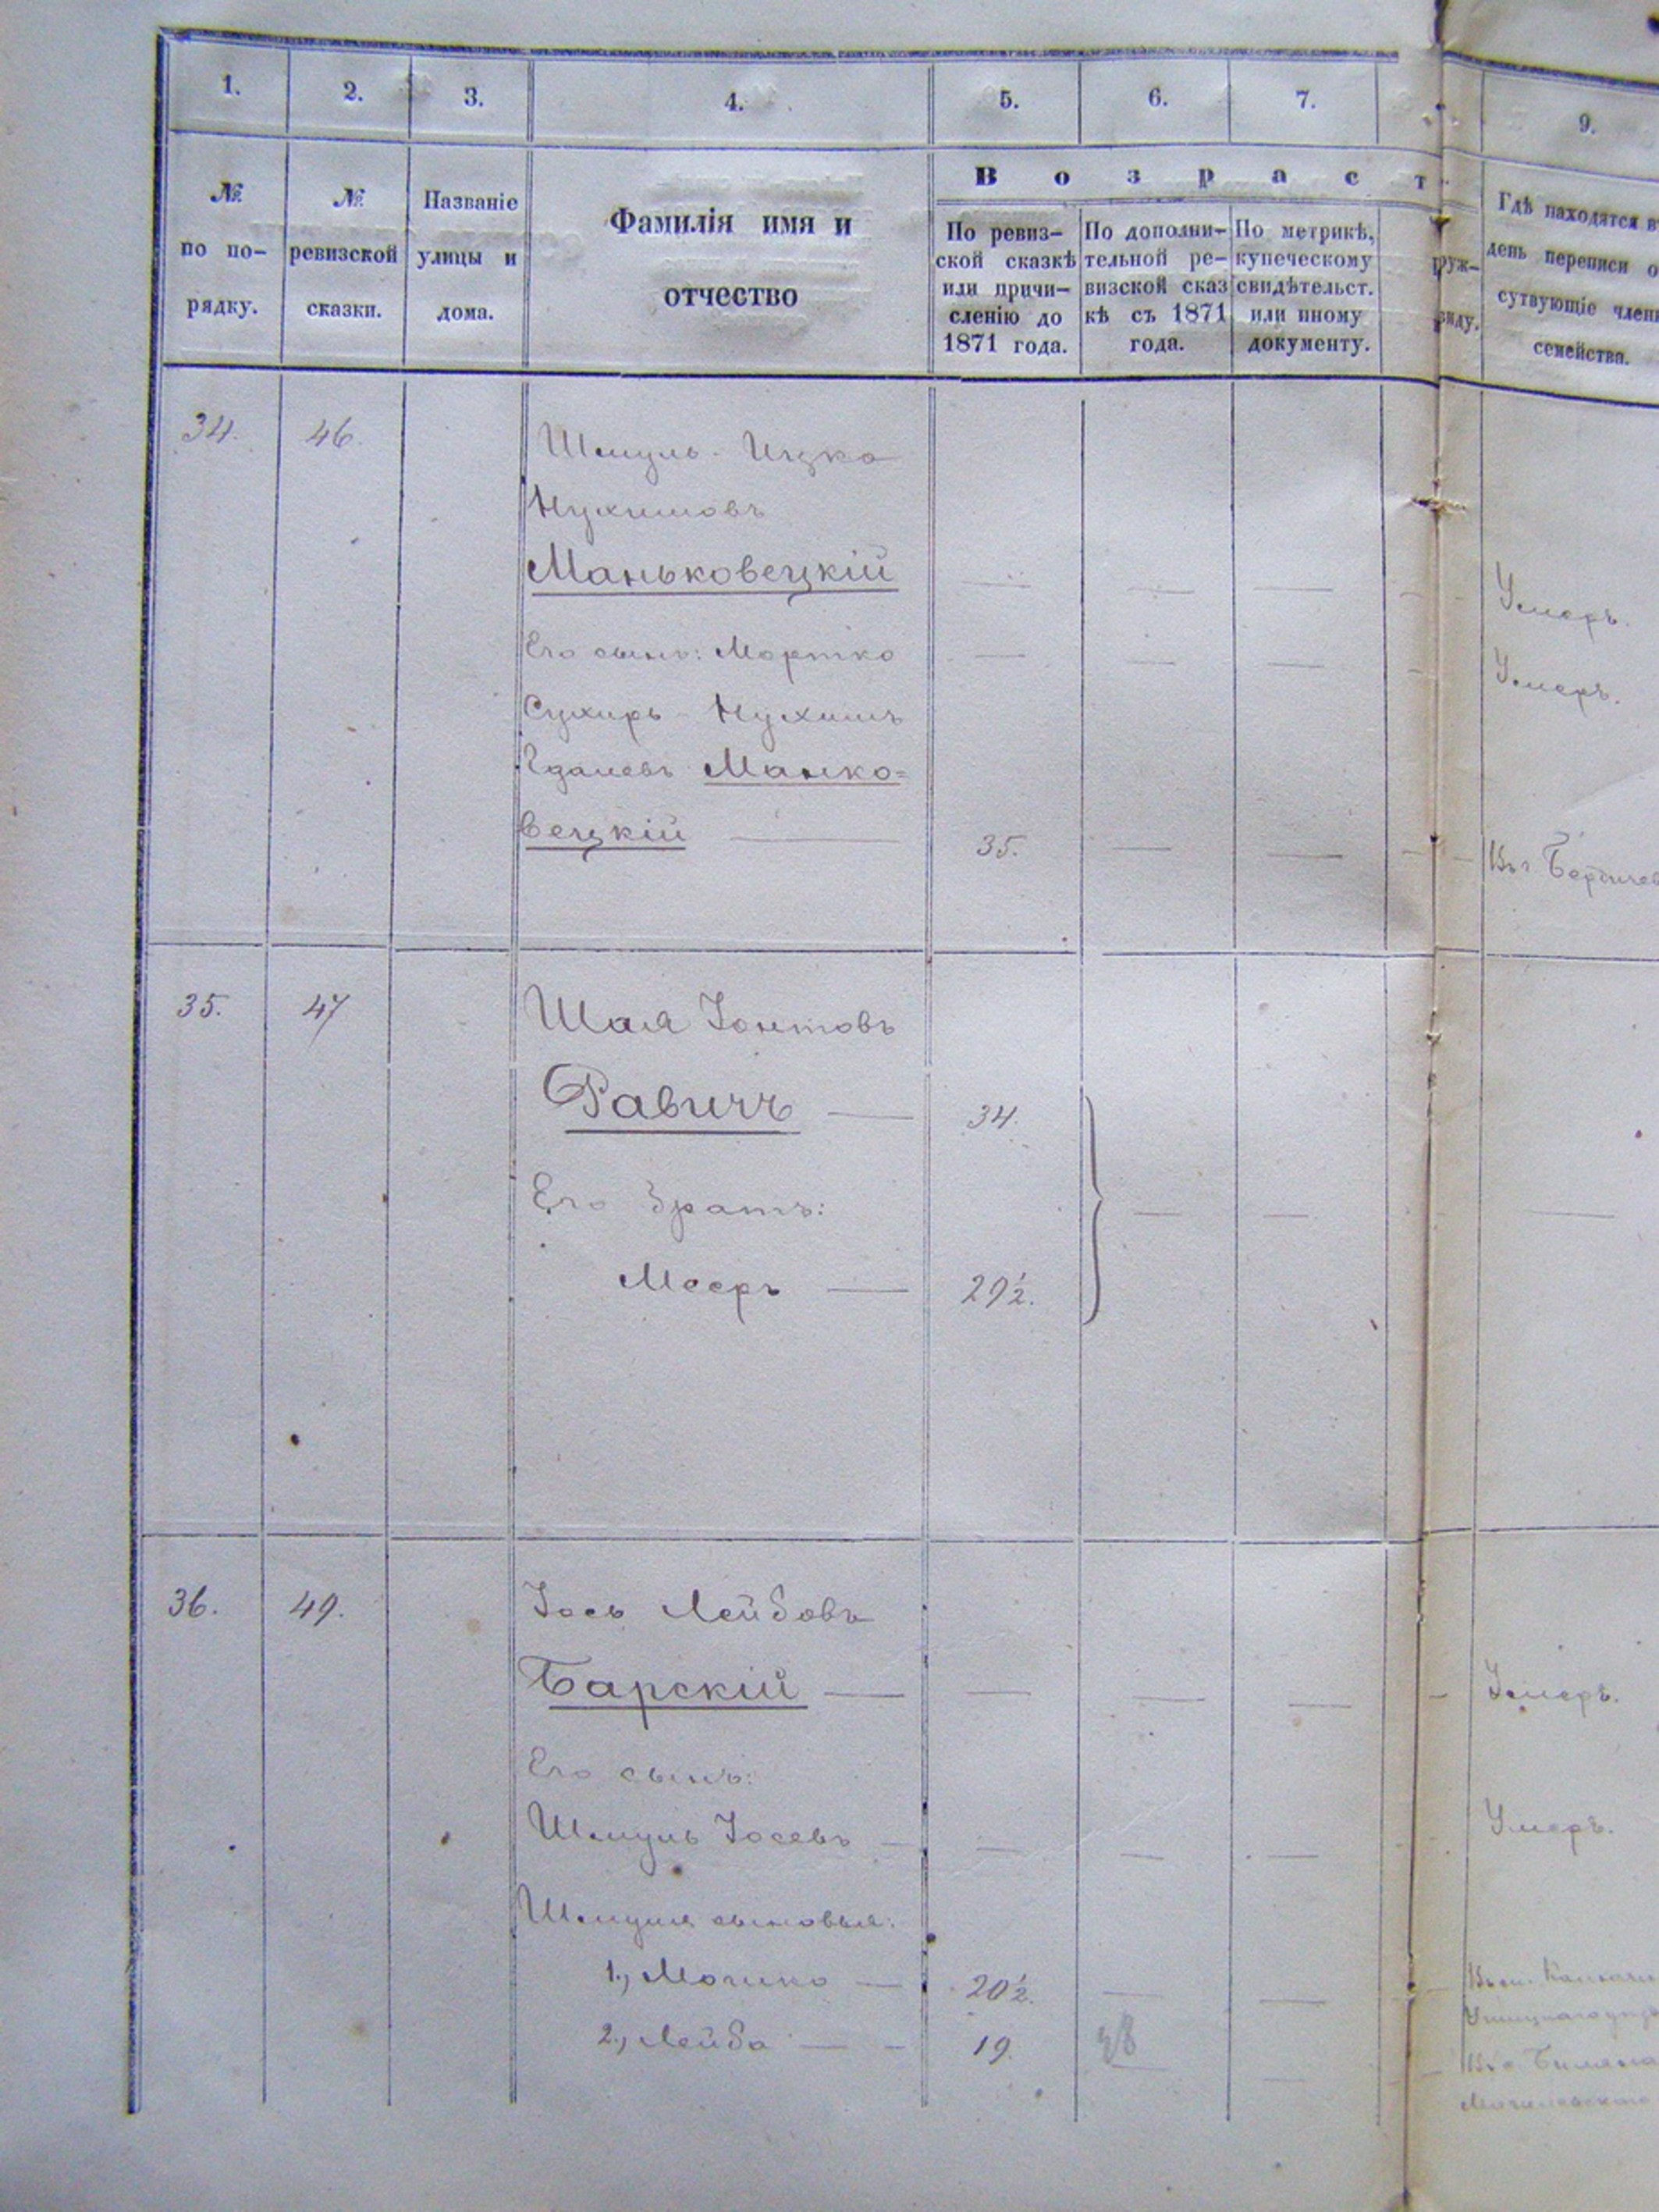 1. 2. 3. 4. 5. 6. 7. 9.
№ по по-
рядку.
№
ревизской
сказки.
Названіе
улицы и
дома.
Фамилія имя и
отчество
Возраст
По ревиз-
ской сказкѣ
или причи-
сленію до
1871 года.
По дополни-
тельной ре-
визской сказ
кѣ съ 1871
года.
По метрикѣ,
купеческому
свидѣтельст.
или иному
документу.
руж-
виду.
Гдѣ находятся в
день переписи о
сутвующіе член
семейства.
34. 46. Шмуль-Ицко
Нухимовъ
Маньковецкій — — — — Умеръ.
Его сынъ: Мортко — — — — Умеръ.
Сухиръ-Нухимъ
Гдалевъ Манко=
вецкій — 35. — — — Въ г Бердичев
35. 47 Шая Іонтовъ
Равичъ — 34.
Его братъ: — — —
Мееръ — 29½.
36. 49. Іось Лейбовъ
Барскій — — — — — Умеръ.
Его сынъ:
Шмуль Іосевъ — — — — Умеръ.
Шмуля сыновья:
1., Мошко — 20½. — —
2., Лейба — 19. —